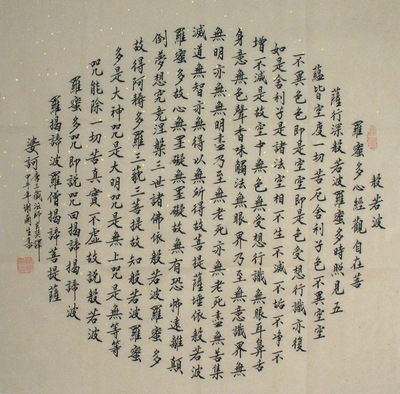 般若波
羅蜜多心經觀自在菩
薩行深般若波羅蜜多時照見五
蘊皆空度一切苦厄舍利子色不異空空
不異色色即是空空即是色受想行識亦復
如是舍利子是諸法空相不生不滅不垢不淨不
增不減是故空中無色無受想行識無眼耳鼻舌
身意無色聲香味觸法無眼界乃至無意識界無
無明亦無無明盡乃至無老死亦無老死盡無苦集
滅道無智亦無得以無所得故菩提薩埵依般若波
羅蜜多故心無罣礙無罣礙故無有恐怖遠離顛
倒夢想究竟涅槃三世諸佛依般若波羅蜜多
故得阿耨多羅三藐三菩提故知般若波羅蜜
多是大神咒是大明咒是無上咒是無等等
咒能除一切苦真實不虛故說般若波
羅蜜多咒即說咒曰揭諦揭諦波
羅揭諦波羅僧揭諦菩提薩
婆訶
唐三藏法師玄奘譯